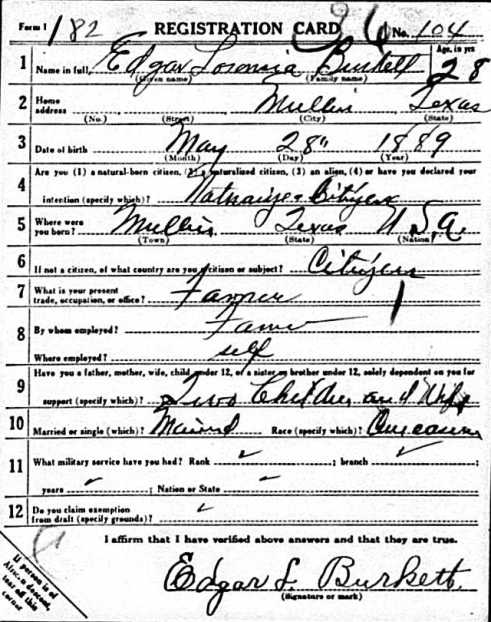 Form 1 182 REGISTRATION CARD 36 No. 104
1 Name in full, Edgar Burkett Age, in yrs 28
(Given name) (Family name)
2 Home address Mullin Texas
(No.) (Street) (City) (State)
3 Date of birth May 28" 1889
(Month) (Day) (Year)
4 Are you (1) a natural-born citizen, (2) a naturalized citizen, (3) an alien, (4) or have you declared your
intention (specify which)? Citizen
5 Where were you born? Mullin Texas U.S.A.
(Town) (State) (Nation)
6 If not a citizen, of what country are you a citizen or subject? Citizen
7 What is your present trade, occupation, or office? Farmer
8 By whom employed?
Where employed? self
9 Have you a father, mother, wife, child under 12, or a sister or brother under 12, solely dependent on you for
support (specify which)? Two and Wife
10 Married or single (which)? Married Race (specify which)?
11 What military service have you had? Rank ; branch
years ; Nation or State
12 Do you claim exemption from draft (specify grounds)?
I affirm that I have verified above answers and that they are true.
Edgar L. Burkett
(Signature or mark)
If person is of
African descent,
tear off this
corner